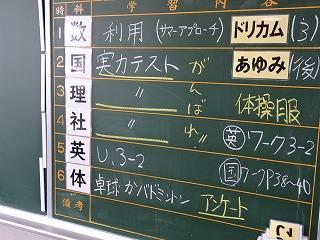 時 科 学習内容
1 数 利用 (サマーアプローチ) ドリカム (3)
2 国 実力テスト がんばれ!! あゆみ (後)
3 理 〃 体操服
4 社 〃 英 ワーク3-2
5 英 U.3-2 国 ワークP38~40
6 体 卓球・かバドミントン アンケート
備考